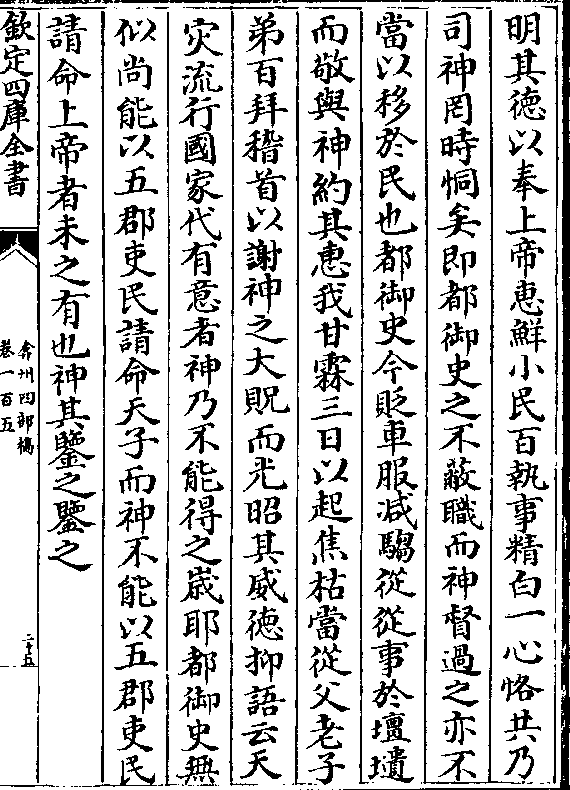 明其徳以奉上帝惠鮮小民百執事精白一心恪共乃
司神罔時恫矣即都御史之不蔽職而神督過之亦不
當以移於民也都御史今貶車服減騶從從事於壇壝
而敬與神約其惠我甘霖三日以起焦枯當從父老子
弟百拜稽首以謝神之大貺而光昭其威徳抑語云天
灾流行國家代有意者神乃不能得之歳耶都御史無
似尚能以五郡吏民請命天子而神不能以五郡吏民
請命上帝者未之有也神其鑒之鑒之
欽定四庫全書
弇州四部稿
卷一百五
二十五